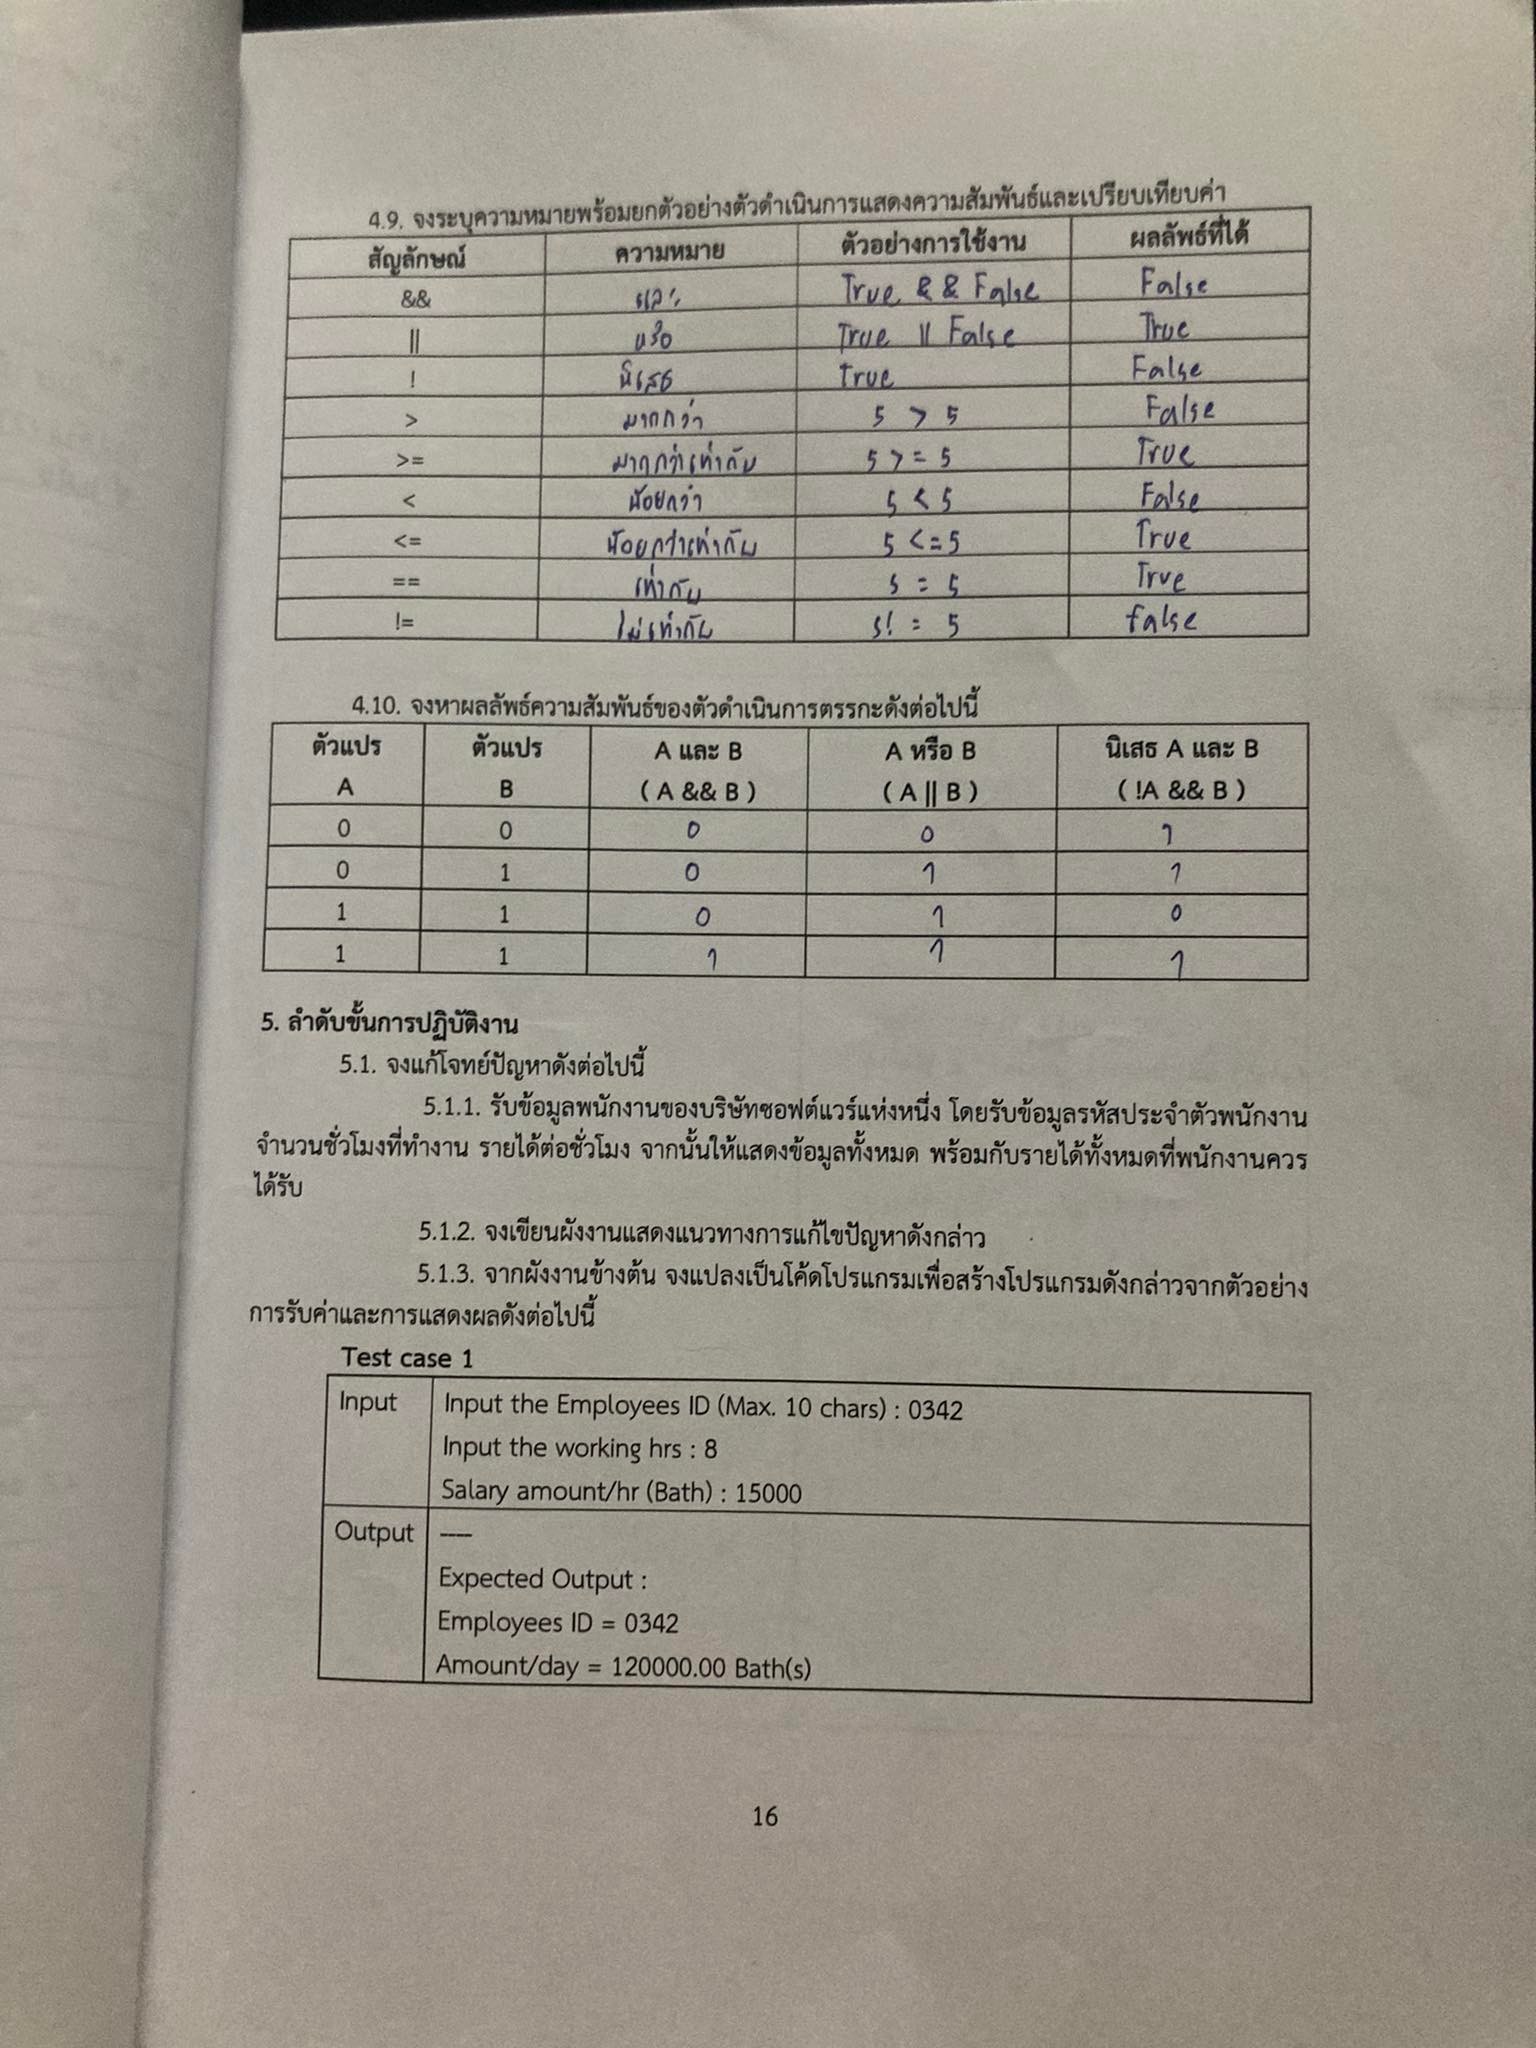 4.9. จงระบุความหมายพร้อมยกตัวอย่างตัวดำเนินการแสดงความสัมพันธ์และเปรียบเทียบค่า
สัญลักษณ์ ความหมาย ตัวอย่างการใช้งาน ผลลัพธ์ที่ได้
&& และ True && False False
|| หรือ True || False True
! นิเสธ True False
> มากกว่า 5 > 5 False
>= มากกว่าเท่ากับ 5 >= 5 True
< น้อยกว่า 5 < 5 False
<= น้อยกว่าเท่ากับ 5 <= 5 True
== เท่ากับ 5 = 5 True
!= ไม่เท่ากับ 5! = 5 false
4.10. จงหาผลลัพธ์ความสัมพันธ์ของตัวดำเนินการตรรกะดังต่อไปนี้
ตัวแปร ตัวแปร A และ B A หรือ B นิเสธ A และ B
A B ( A && B ) ( A || B ) ( !A && B )
0 0 0 0 1
0 1 0 1 1
1 1 0 1 0
1 1 1 1 1
5. ลำดับขั้นการปฏิบัติงาน
5.1. จงแก้โจทย์ปัญหาดังต่อไปนี้
5.1.1. รับข้อมูลพนักงานของบริษัทซอฟต์แวร์แห่งหนึ่ง โดยรับข้อมูลรหัสประจำตัวพนักงาน
จำนวนชั่วโมงที่ทำงาน รายได้ต่อชั่วโมง จากนั้นให้แสดงข้อมูลทั้งหมด พร้อมกับรายได้ทั้งหมดที่พนักงานควร
ได้รับ
5.1.2. จงเขียนผังงานแสดงแนวทางการแก้ไขปัญหาดังกล่าว
5.1.3. จากผังงานข้างต้น จงแปลงเป็นโค้ดโปรแกรมเพื่อสร้างโปรแกรมดังกล่าวจากตัวอย่าง
การรับค่าและการแสดงผลดังต่อไปนี้
Test case 1
Input Input the Employees ID (Max. 10 chars) : 0342
Input the working hrs : 8
Salary amount/hr (Bath) : 15000
Output ----
Expected Output :
Employees ID = 0342
Amount/day = 120000.00 Bath(s)
16